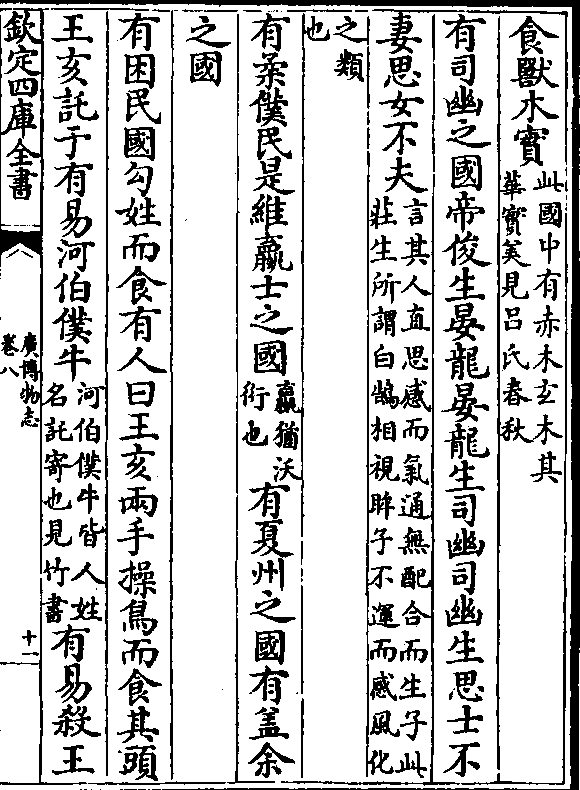 食獸木實此國中有赤木玄木其華實美見呂氏春秋
有司幽之國帝俊生晏龍晏龍生司幽司幽生思士不
妻思女不夫言其人直思感而氣通無配合而生子此莊生所謂白鵠相視眸子不運而感風化
之類也
有柔僕民是維嬴土之國嬴猶沃衍也有夏州之國有盖余
之國
有困民國勾姓而食有人曰王亥兩手操鳥而食其頭
王亥託于有易河伯僕牛河伯僕牛皆人姓名託寄也見竹書有易殺王
欽定四庫全書
廣博物志
卷八
十一